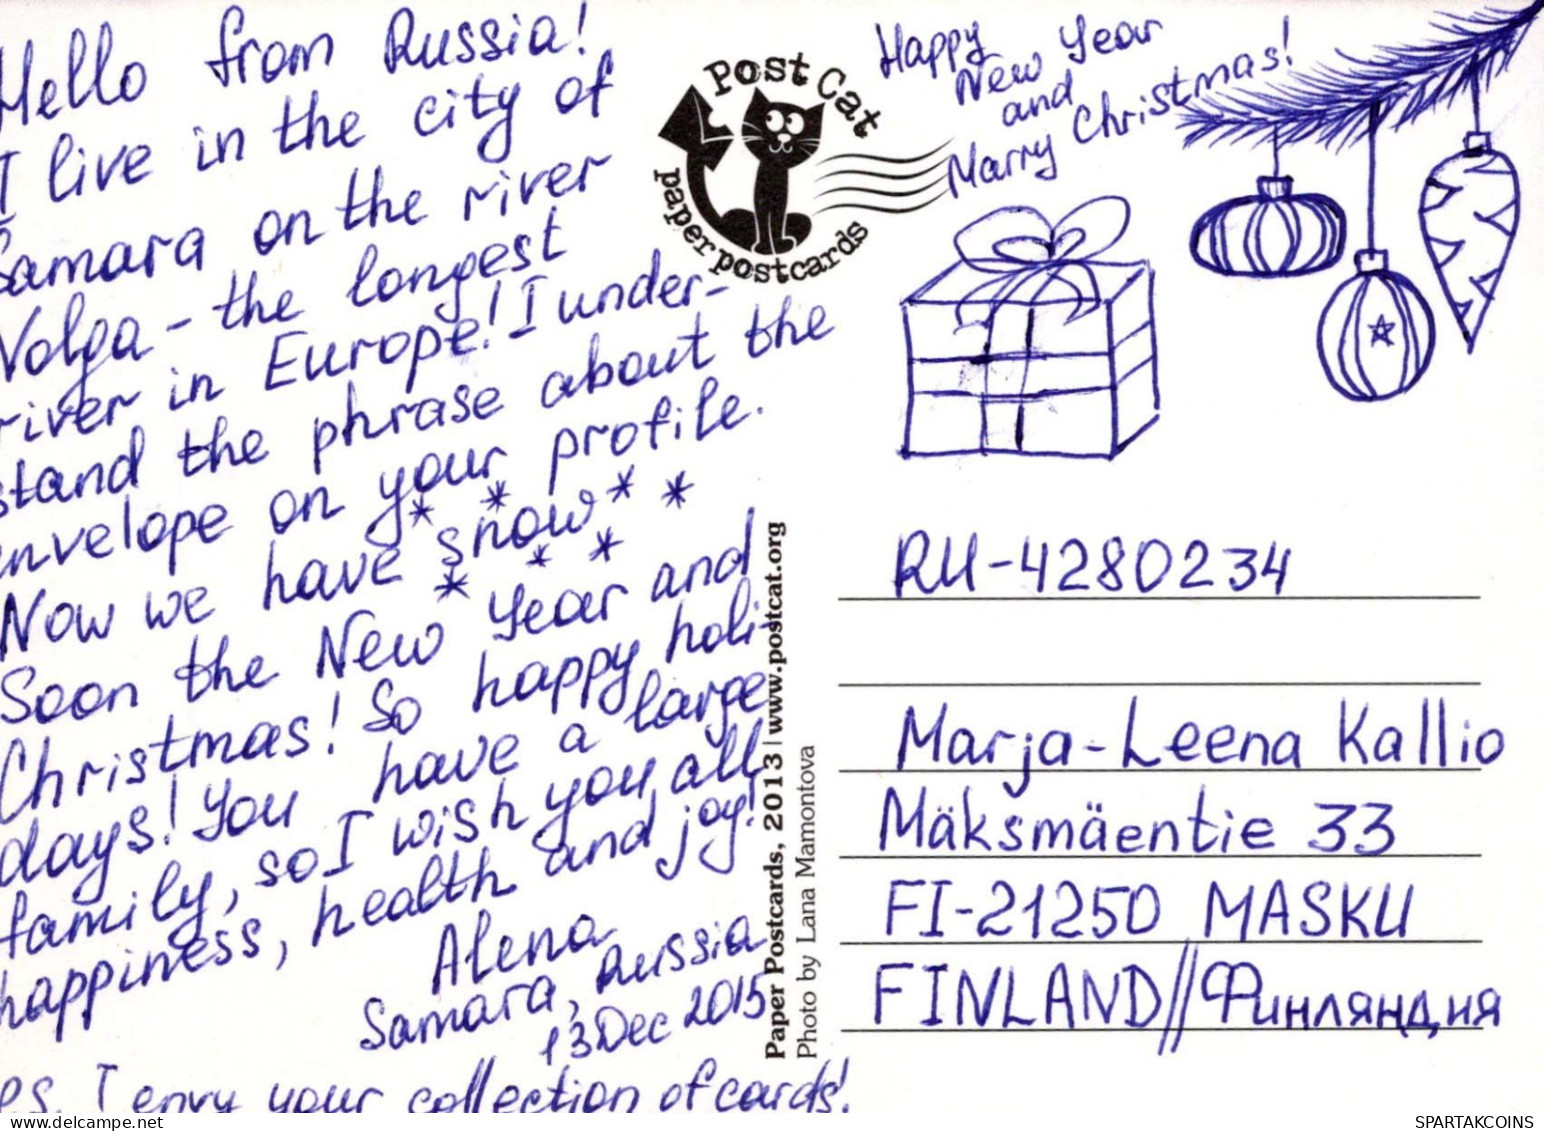 Hello from Russia!
I live in the city of
Samara on the river
Volga - the longest
river in Europe! I under-
stand the phrase about the
envelope on your profile.
Now we have snow
Soon the New Year and
Christmas! So happy holi-
days! You have a large
family, so I wish you all
happiness, health and joy!
Alena
Samara, Russia
13 Dec 2015
PS. I envy your collection of cards!
Post Cat
paper postcards
Happy
New Year
and
Marry Christmas!
Paper Postcards, 2013 | www.postcat.org
Photo by Lana Mamontova
RU-4280234
Marja-Leena Kallio
Mäksmäentie 33
FI-21250 MASKU
FINLAND//Финляндия
www.delcampe.net
SPARTAKCOINS